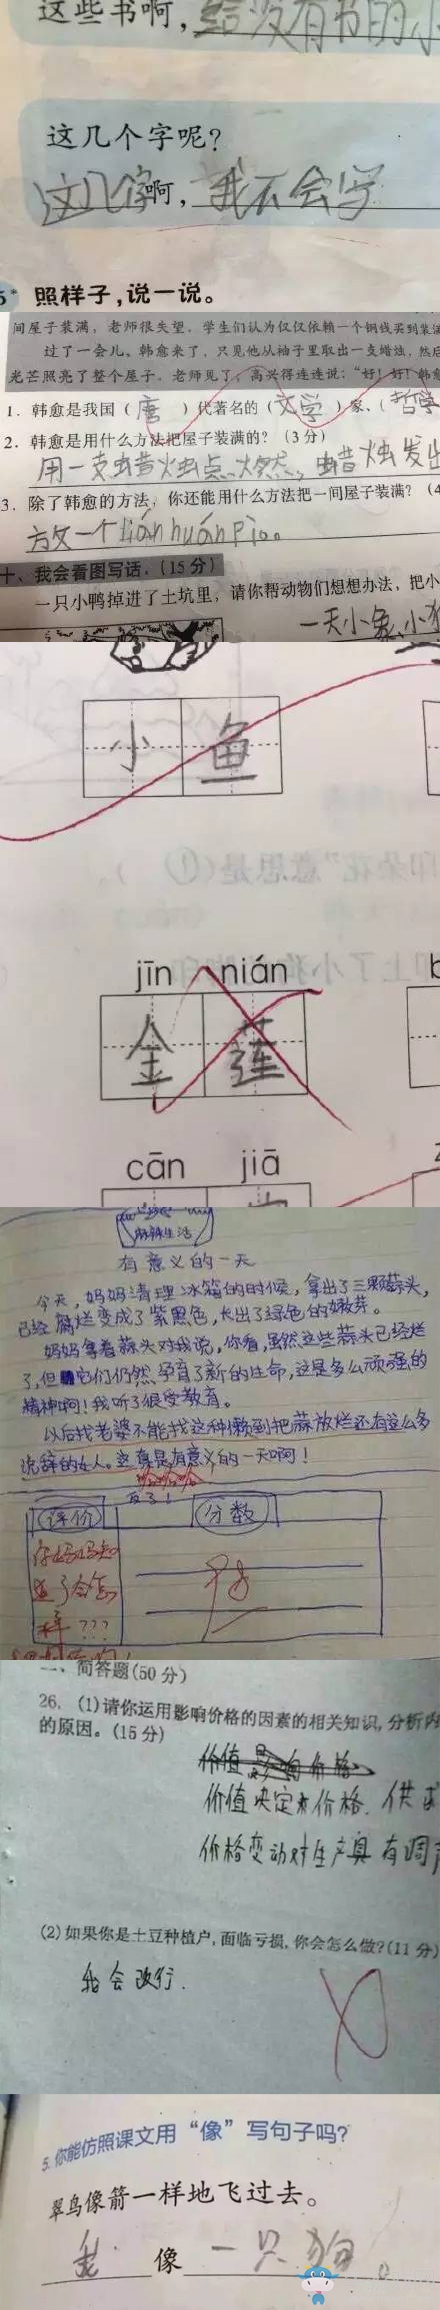 这些书啊，给没有书的小
这几个字呢？
这几个字啊，我不会写
5* 照样子，说一说。
间屋子装满，老师很失望。学生们认为仅仅依赖一个铜钱买到装满
过了一会儿，韩愈来了，只见他从袖子里取出一支蜡烛，然后
光芒照亮了整个屋子。老师见了，高兴得连连说：“好！好！韩愈
1．韩愈是我国（唐）代著名的（文学）家、（哲学
2．韩愈是用什么方法把屋子装满的？（3分）
用一支蜡烛点燃，蜡烛发出
3．除了韩愈的方法，你还能用什么方法把一间屋子装满？（4
放一个lián huán pì。
十、我会看图写话。（15分）
一只小鸭掉进了土坑里，请你帮动物们想想办法，把小
一天小象、小猴
小鱼
jīn nián
金莲
cān jiā
麻辣生活
有意义的一天
今天，妈妈清理冰箱的时候，拿出了三颗蒜头，
已经腐烂变成了紫黑色，长出了绿色的嫩芽。
妈妈拿着蒜头对我说，你看，虽然这些蒜头已经烂
了，但它们仍然孕育了新的生命，这是多么顽强的
精神啊！我听了很受教育。
以后找老婆不能找这种懒到把蒜放烂还有这么多
说辞的女人。这真是有意义的一天啊！
哈哈哈
反了！
评价 分数
你妈妈知
道了会怎
样？？？
二、简答题(50分)
26. (1)请你运用影响价格的因素的相关知识，分析内
的原因。(15分)
价值决定价格．供求
价格变动对生产具有调
(2)如果你是土豆种植户，面临亏损，你会怎么做？(11分)
我会改行．
5. 你能仿照课文用“像”写句子吗？
翠鸟像箭一样地飞过去。
我 像 一只狗。